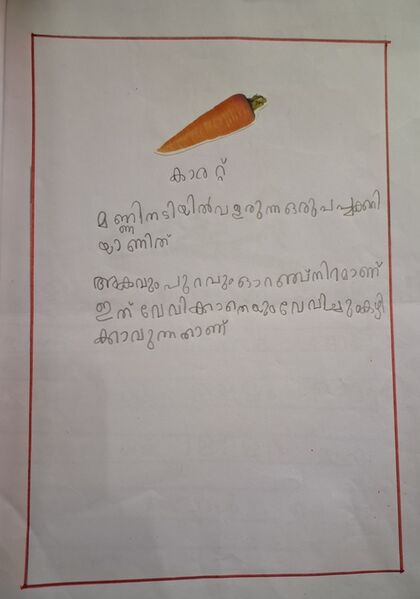 കാരറ്റ്
മണ്ണിനടിയിൽവളരുന്ന ഒരു പച്ചക്കറി
യാണിത്
അകവും പുറവും ഓറഞ്ച്നിറമാണ്
ഇത് വേവിക്കാതെയും വേവിച്ചും കഴി
ക്കാവുന്നതാണ്